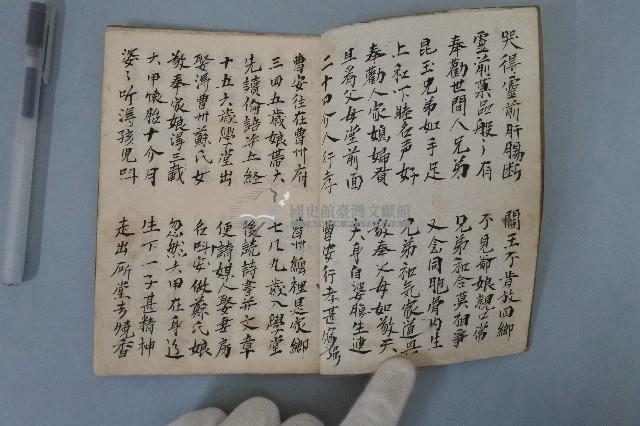 哭得靈前肝腸斷 閻王不肯放回鄉
靈前菓品般〻有 不見爺娘親口嘗
奉勸世間人兄弟 兄弟和合莫相爭
昆玉兄弟如手足 又念同胞骨肉生
上和下睦名声好 兄弟和氣家道興
奉勸人家媳婦賢 敬奉父母如敬天
且為父母堂前面 夫身自婆腹生連
二十四个人行孝 曹安行孝甚
曹安住在曹州府 曹州縣裡是家鄉
三四五歲娘帶大 七八九歲入學堂
先讀倫語并五經 後讀詩書并文章
十五六歲學堂出 便請媒人娶妻房
娶得曹州蘇氏女 名叫安做蘇氏娘
敬奉家娘得三載 忽然六甲在身邊
六甲懷胎十个月 生下一子甚精神
婆〻听得孩兒叫 走出所堂去燒香
國史館臺灣文獻館